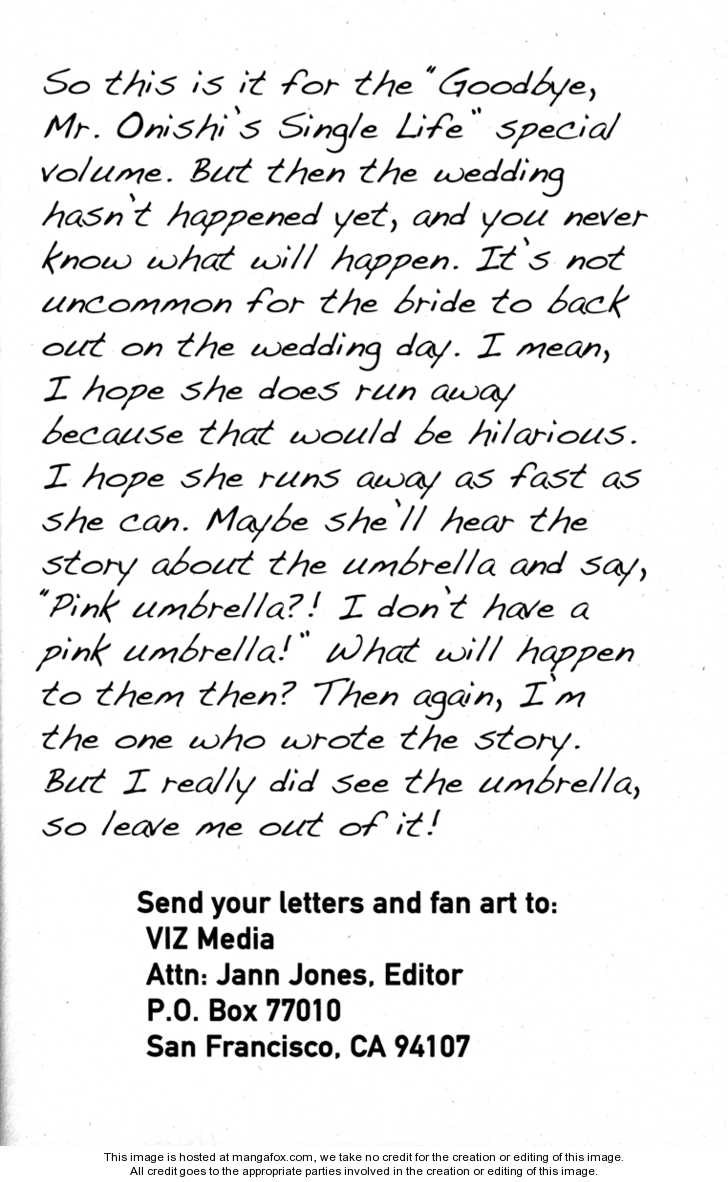 So this is it for the "Goodbye,
Mr. Onishi's Single Life" special
volume. But then the wedding
hasn't happened yet, and you never
know what will happen. It's not
uncommon for the bride to back
out on the wedding day. I mean,
I hope she does run away
because that would be hilarious.
I hope she runs away as fast as
she can. Maybe she'll hear the
story about the umbrella and say,
"Pink umbrella?! I don't have a
pink umbrella!" What will happen
to them then? Then again, I'm
the one who wrote the story.
But I really did see the umbrella,
so leave me out of it!
Send your letters and fan art to:
VIZ Media
Attn: Jann Jones, Editor
P.O. Box 77010
San Francisco, CA 94107
This image is hosted at mangafox.com, we take no credit for the creation or editing of this image.
All credit goes to the appropriate parties involved in the creation or editing of this image.